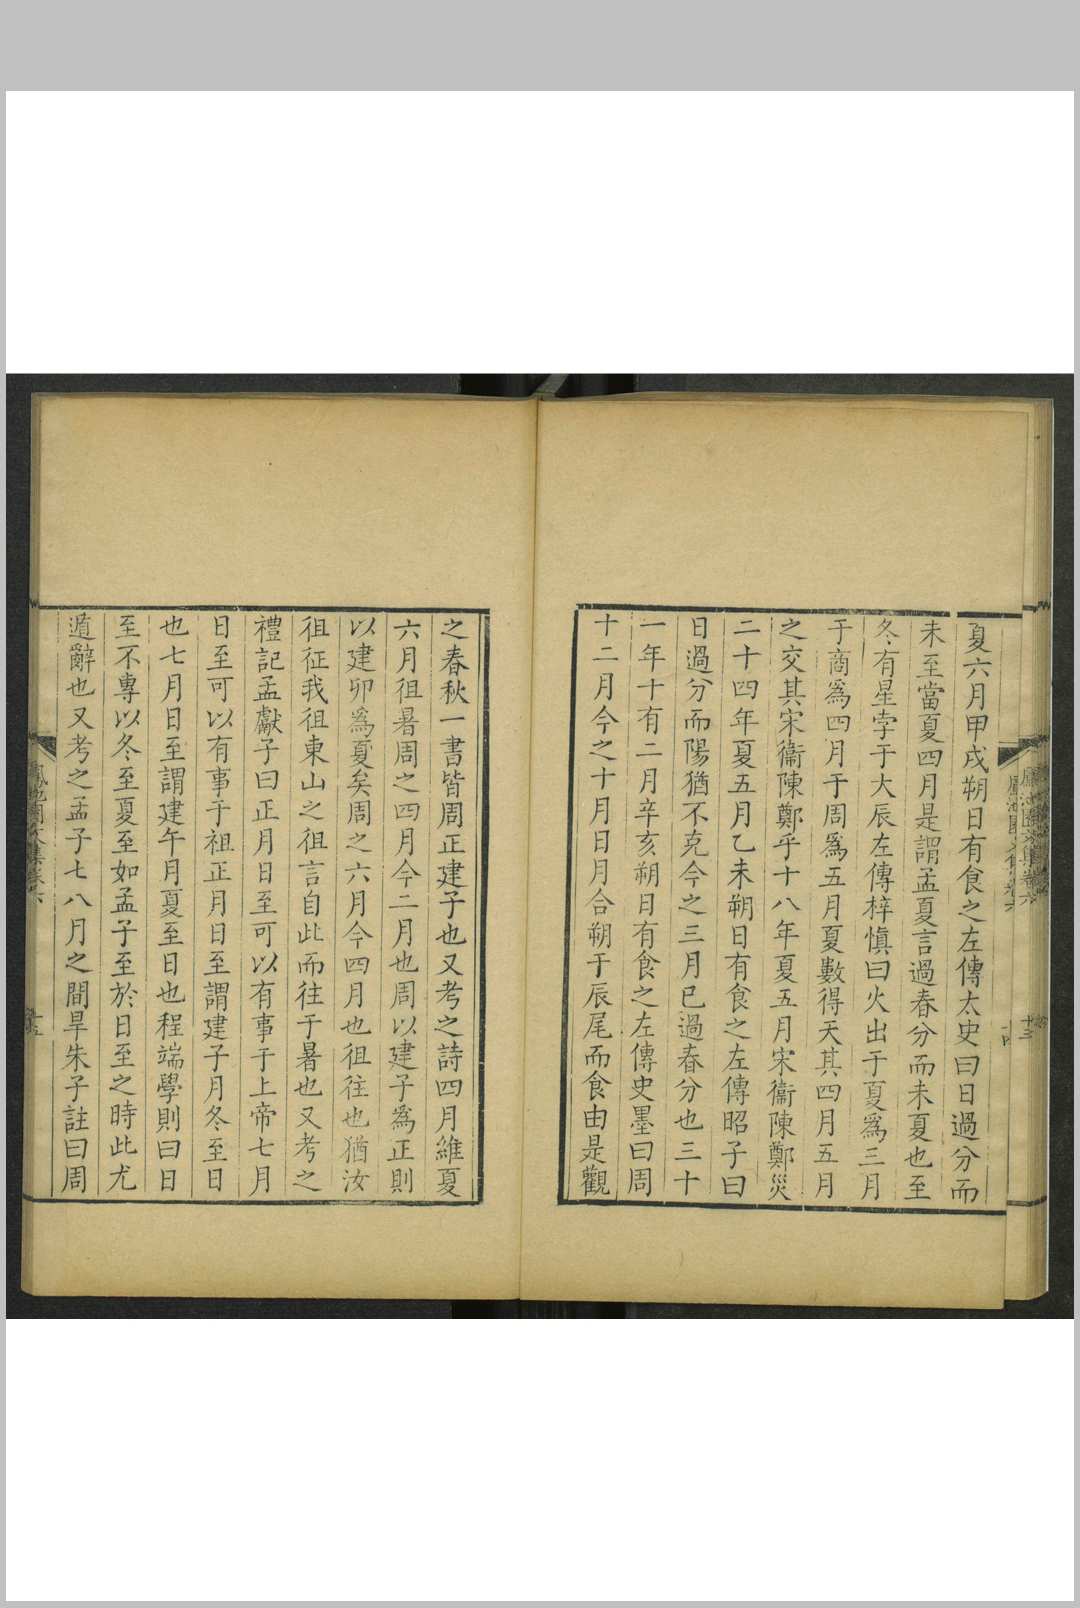 夏六月甲戌朔日有食之左傳太史曰日過分而
未至當夏四月是謂孟夏言過春分而未夏也至
冬有星孛于大辰左傳梓慎曰火出于夏爲三月
于商爲四月于周爲五月夏數得天其四月五月
之交其宋衞陳鄭乎十八年夏五月宋衞陳鄭災
二十四年夏五月乙未朔日有食之左傳昭子曰
日過分而陽猶不克今之三月已過春分也三十
一年十有二月辛亥朔日有食之左傳史墨曰周
十二月今之十月日月合朔于辰尾而食由是觀
之春秋一書皆周正建子也又考之詩四月維夏
六月徂暑周之四月今二月也周以建子爲正則
以建卯爲夏矣周之六月今四月也徂往也猶汝
徂征我徂東山之徂言自此而往于暑也又考之
禮記孟獻子曰正月日至可以有事于上帝七月
日至可以有事于祖正月日至謂建子月冬至日
也七月日至謂建午月夏至日也程端學則曰日
至不專以冬至夏至如孟子至於日至之時此尤
遁辭也又考之孟子七八月之間旱朱子註曰周